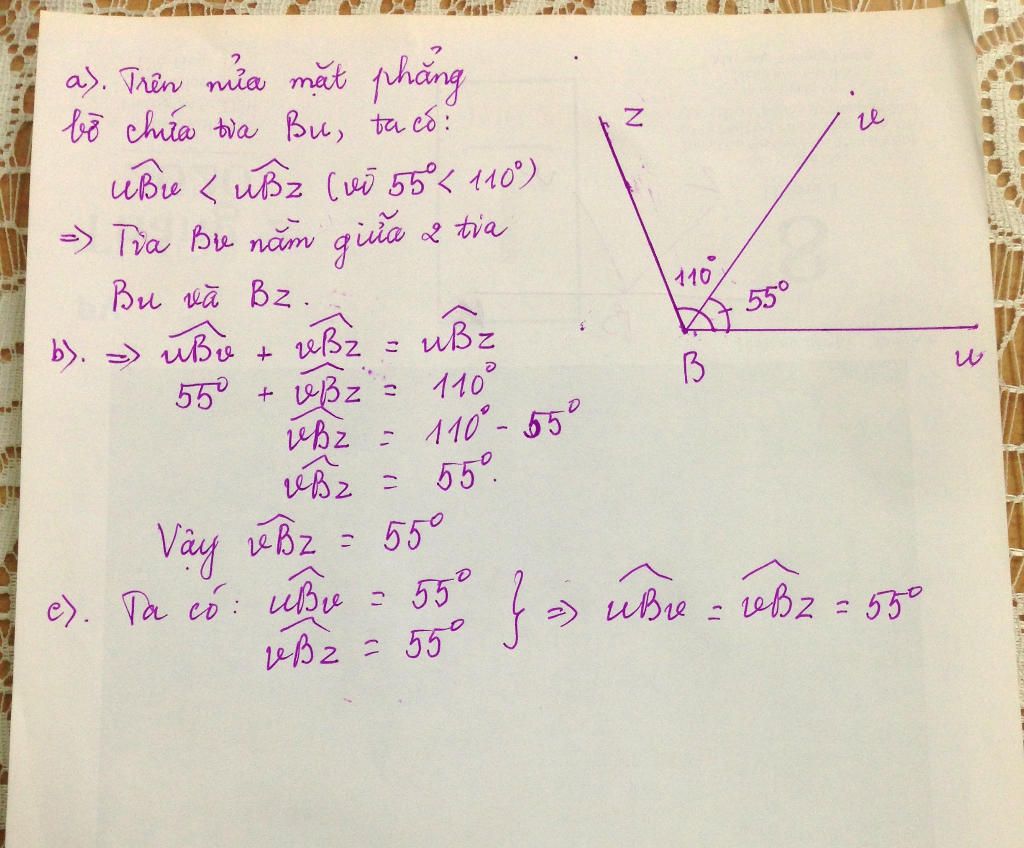 a). Trên nửa mặt phẳng
bờ chứa tia Bu, ta có:
uBv < uBz (vì 55° < 110°)
=> Tia Bv nằm giữa 2 tia
Bu và Bz.
b). => uBv + vBz = uBz
55° + vBz = 110°
vBz = 110° - 55°
vBz = 55°.
Vậy vBz = 55°
c). Ta có: uBv = 55°
vBz = 55° } => uBv = vBz = 55°
z
v
110°
55°
B
u